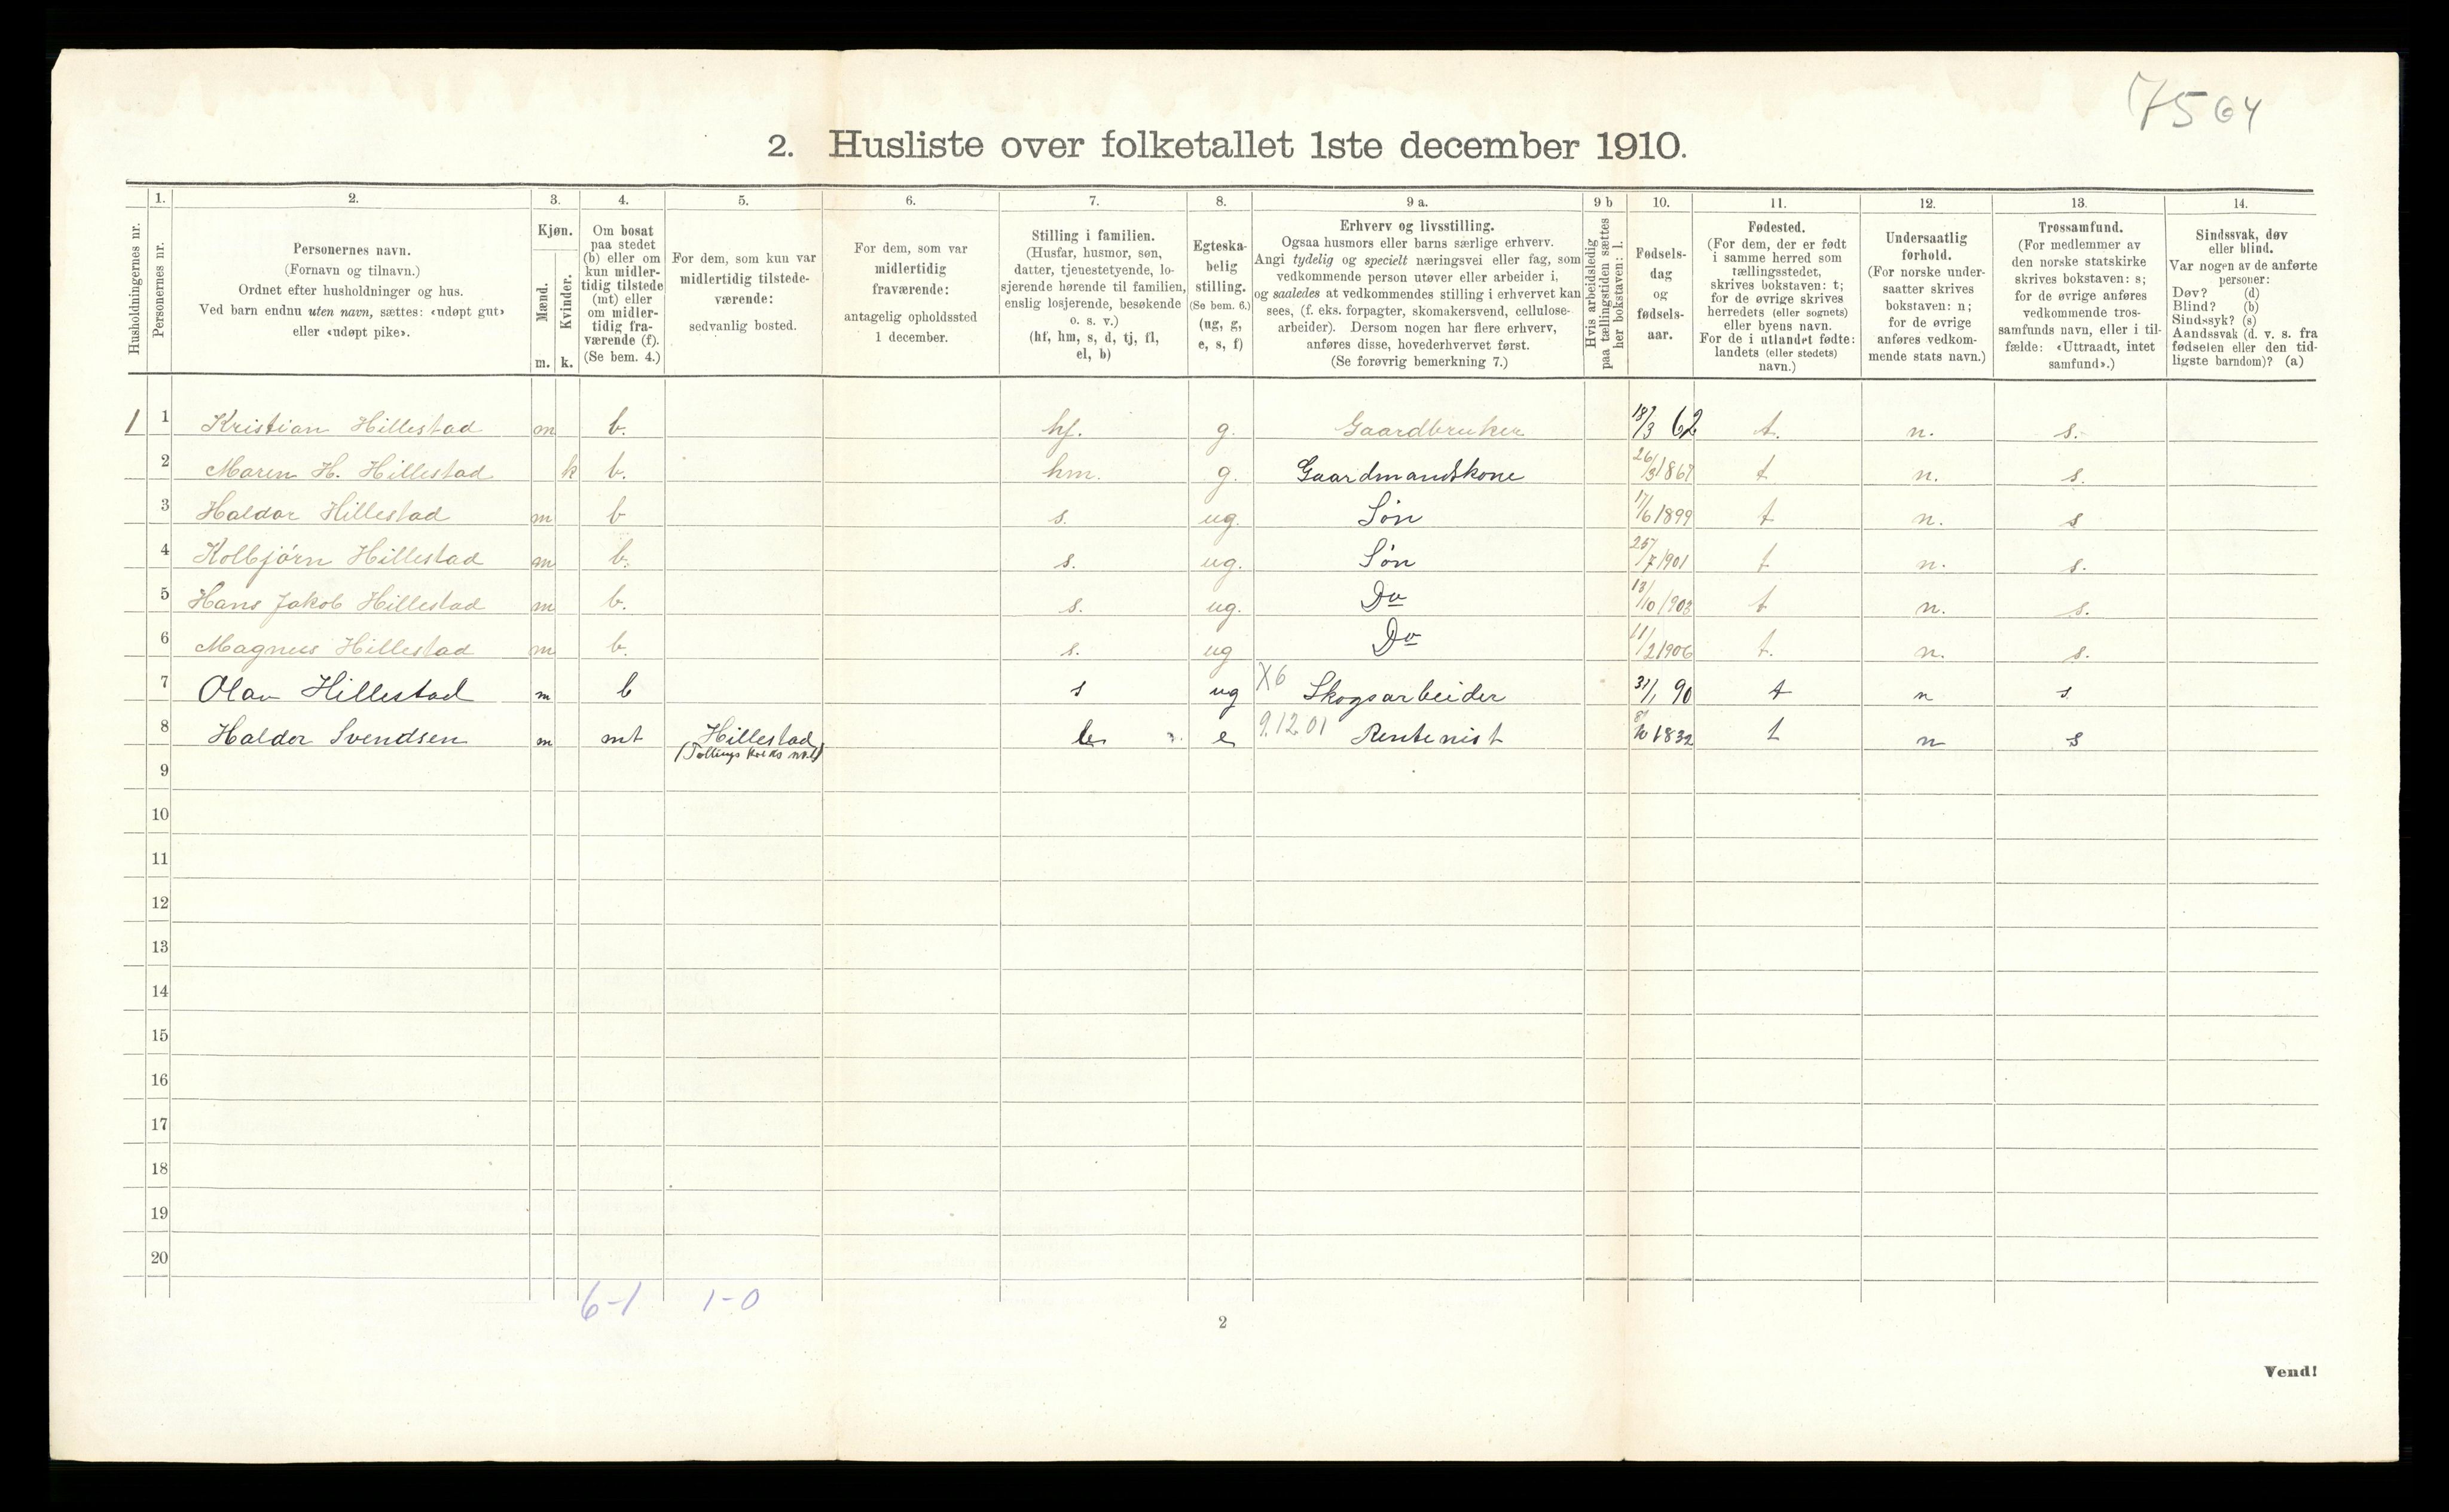 7564
2. Husliste over folketallet 1ste december 1910.
Husholdningernes nr.
1.
Personernes nr.
2.
Personernes navn.
(Fornavn og tilnavn.)
Ordnet efter husholdninger og hus.
Ved barn endnu uten navn, sættes: «udøpt gut»
eller «udøpt pike».
3.
Kjøn.
Mænd.
Kvinder.
m. k.
4.
Om bosat
paa stedet
(b) eller om
kun midler-
tidig tilstede
(mt) eller
om midler-
tidig fra-
værende (f).
(Se bem. 4.)
5.
For dem, som kun var
midlertidig tilstede-
værende:
sedvanlig bosted.
6.
For dem, som var
midlertidig
fraværende:
antagelig opholdssted
1 december.
7.
Stilling i familien.
(Husfar, husmor, søn,
datter, tjenestetyende, lo-
sjerende hørende til familien,
enslig losjerende, besøkende
o. s. v.)
(hf, hm, s, d, tj, fl,
el, b)
8.
Egteska-
belig
stilling.
(Se bem. 6.)
(ug, g,
e, s, f)
9 a.
Erhverv og livsstilling.
Ogsaa husmors eller barns særlige erhverv.
Angi tydelig og specielt næringsvei eller fag, som
vedkommende person utøver eller arbeider i,
og saaledes at vedkommendes stilling i erhvervet kan
sees, (f. eks. forpagter, skomakersvend, cellulose-
arbeider). Dersom nogen har flere erhverv,
anføres disse, hovederhvervet først.
(Se forøvrig bemerkning 7.)
9 b
Hvis arbeidsledig
paa tællingstiden sættes
her bokstaven: l.
10.
Fødsels-
dag
og
fødsels-
aar.
11.
Fødested.
(For dem, der er født
i samme herred som
tællingsstedet,
skrives bokstaven: t;
for de øvrige skrives
herredets (eller sognets)
eller byens navn.
For de i utlandet fødte:
landets (eller stedets)
navn.)
12.
Undersaatlig
forhold.
(For norske under-
saatter skrives
bokstaven: n;
for de øvrige
anføres vedkom-
mende stats navn.)
13.
Trossamfund.
(For medlemmer av
den norske statskirke
skrives bokstaven: s;
for de øvrige anføres
vedkommende tros-
samfunds navn, eller i til-
fælde: «Uttraadt, intet
samfund».)
14.
Sindssvak, døv
eller blind.
Var nogen av de anførte
personer:
Døv? (d)
Blind? (b)
Sindssyk? (s)
Aandssvak (d. v. s. fra
fødselen eller den tid-
ligste barndom)? (a)
1 1 Kristian Hillestad m b. hf. g. Gaardbruker 18/3 62 t. n. s.
2 Maren H. Hillestad k b. hm. g. Gaardmandskone 26/3 1867 t n. s.
3 Haldor Hillestad m b s. ug. Søn 17/6 1899 t n. s
4 Kolbjørn Hillestad m b. s. ug. Søn 25/7 1901 t n. s.
5 Hans Jakob Hillestad m b. s. ug. Do 13/10 1903 t n. s.
6 Magnus Hillestad m b. s. ug Do 11/2 1906 t. n. s.
7 Olav Hillestad m b s ug X6 Skogsarbeider 31/1 90 t n s
8 Haldor Svendsen m mt Hillestad b e 9.12.01 Rentenist 8/10 1832 t n s
9
10
11
12
13
14
15
16
17
18
19
20
6-1 1-0
2
Vend!